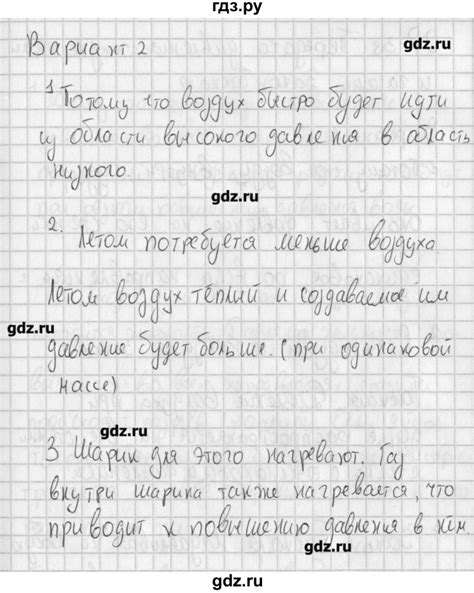 гдз.ру
Вариант 2
gdz.ru
1 Потому что воздух быстро будет идти
из области высокого давления в область
низкого.
gdz.ru
2. Летом потребуется меньше воздуха.
Летом воздух тёплий и создаваемое им
gdz.ru
давление будет больше. (при одинаковой
массе)
gdz.ru
3 Шарик для этого нагревают. Газ
внутри шарика также нагревается, что
приводит к повышению давления в нём.
gdz.ru